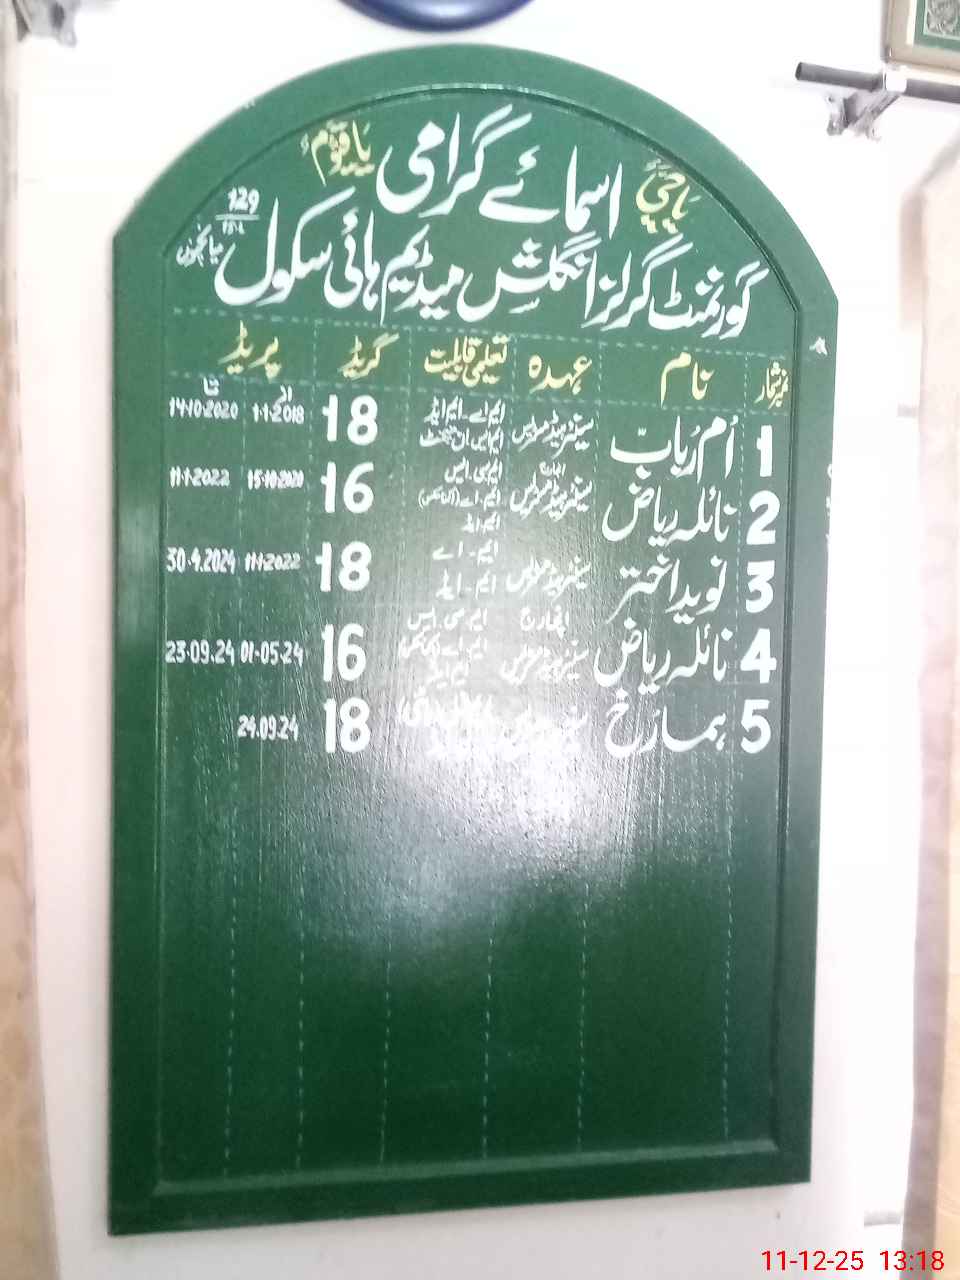 یا حیُّ اسمائے گرامی یا قیّومُ
گورنمنٹ گرلز انگلش میڈیم ہائی سکول 129/15-L میانچنوں
نمبر شمار نام عہدہ تعلیمی قابلیت گریڈ پریڈ
از تا
1 اُم رُباب سینئر ہیڈ مسٹریس ایم اے ۔ ایم ایڈ 18 1-1-2018 14-10-2020
2 نائلہ ریاض سینئر ہیڈ مسٹریس ایم ایڈ 16 15-10-2020 11-1-2022
3 نوید اختر سینئر ہیڈ مسٹریس ایم ۔ اے ایم ۔ ایڈ 18 11-1-2022 30-4-2024
4 نائلہ ریاض انچارج سینئر ہیڈ مسٹریس ایم ایڈ 16 01-05-24 23-09-24
5 ہما رُخ 18 24.09.24
11-12-25 13:18